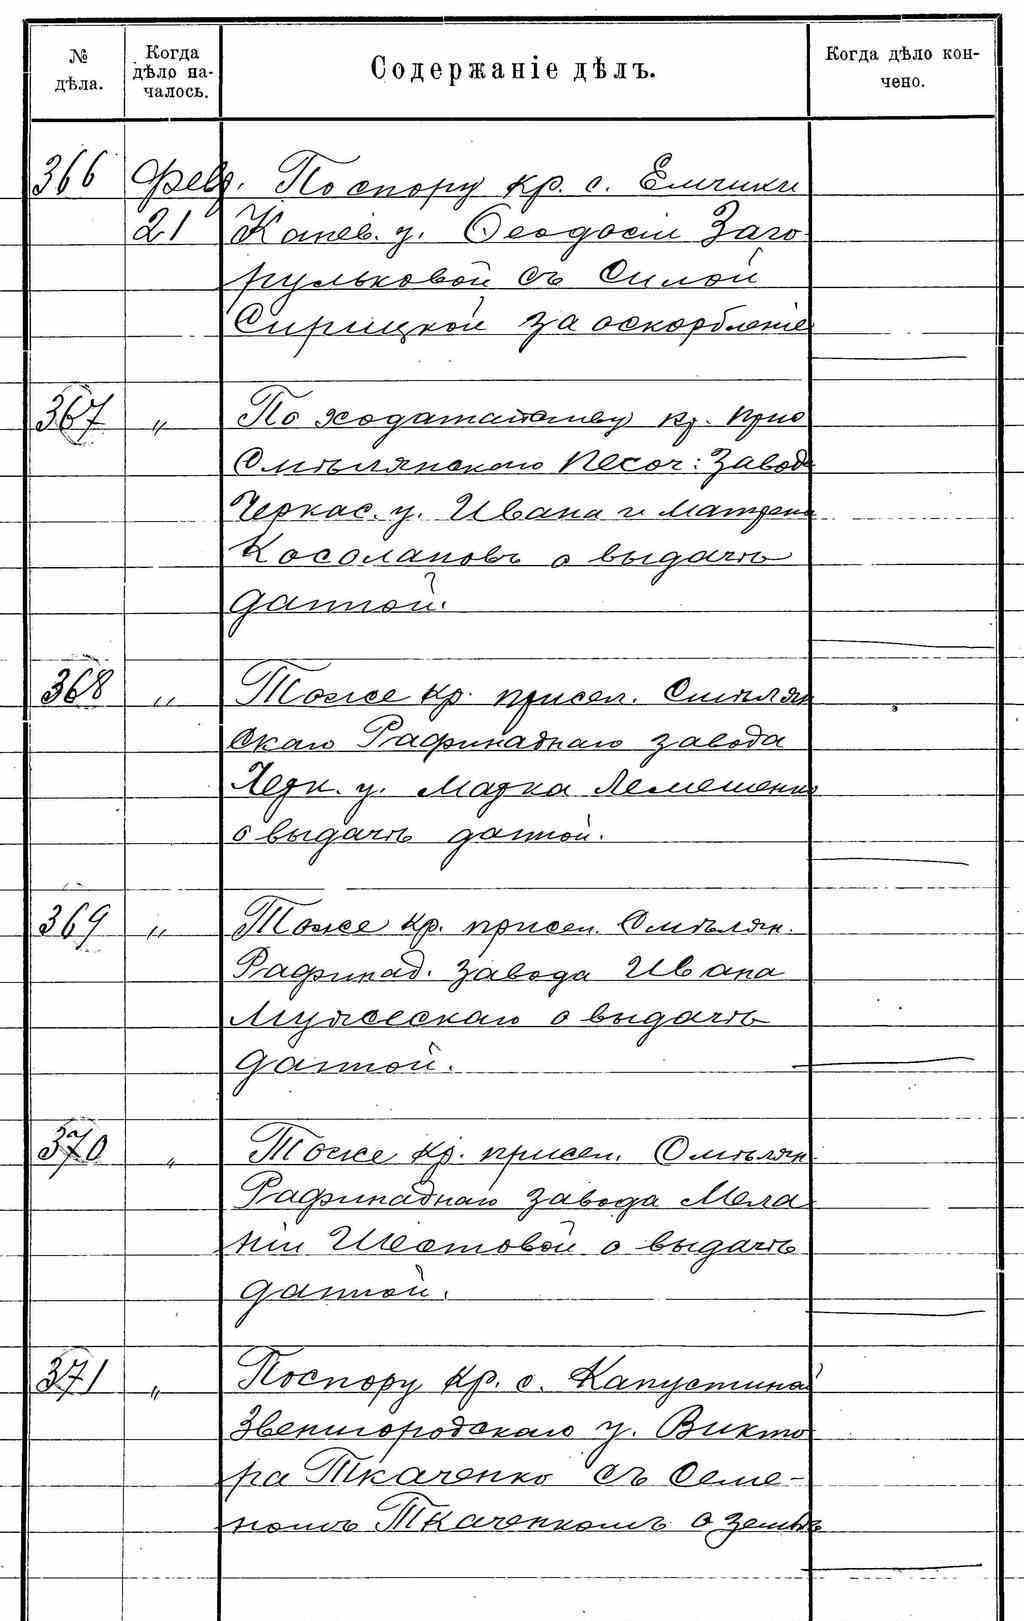 № дѣла.
Когда дѣло на-
чалось.
Содержаніе дѣлъ.
Когда дѣло кон-
чено.
366 Февр. По спору кр. с. Емчихи
21 Канев. у. Ѳеодосіи Заго-
рульковой съ Силой
Сирицкой за оскорбленіе
367 " По ходатайству кр. при
Смѣлянскаго Песоч: Завода
Черкас. у. Ивана и Матрены
Косолаповъ о выдачѣ
данной.
368 " Тоже кр. присел. Смѣлян
скаго Рафинаднаго завода
Черк. у. Марка Лемешенко
о выдачѣ данной.
369 " Тоже кр. присел. Смѣлян.
Рафинад. завода Ивана
о выдачѣ
данной.
370 " Тоже кр. присел. Смѣлян.
Рафинаднаго завода Мела
ніи Шестовой о выдачѣ
данной.
371 " По спору кр. с. Капустиной
Звенигородскаго у. Викто
ра Ткаченко съ Семе-
номъ Ткаченкомъ о землѣ